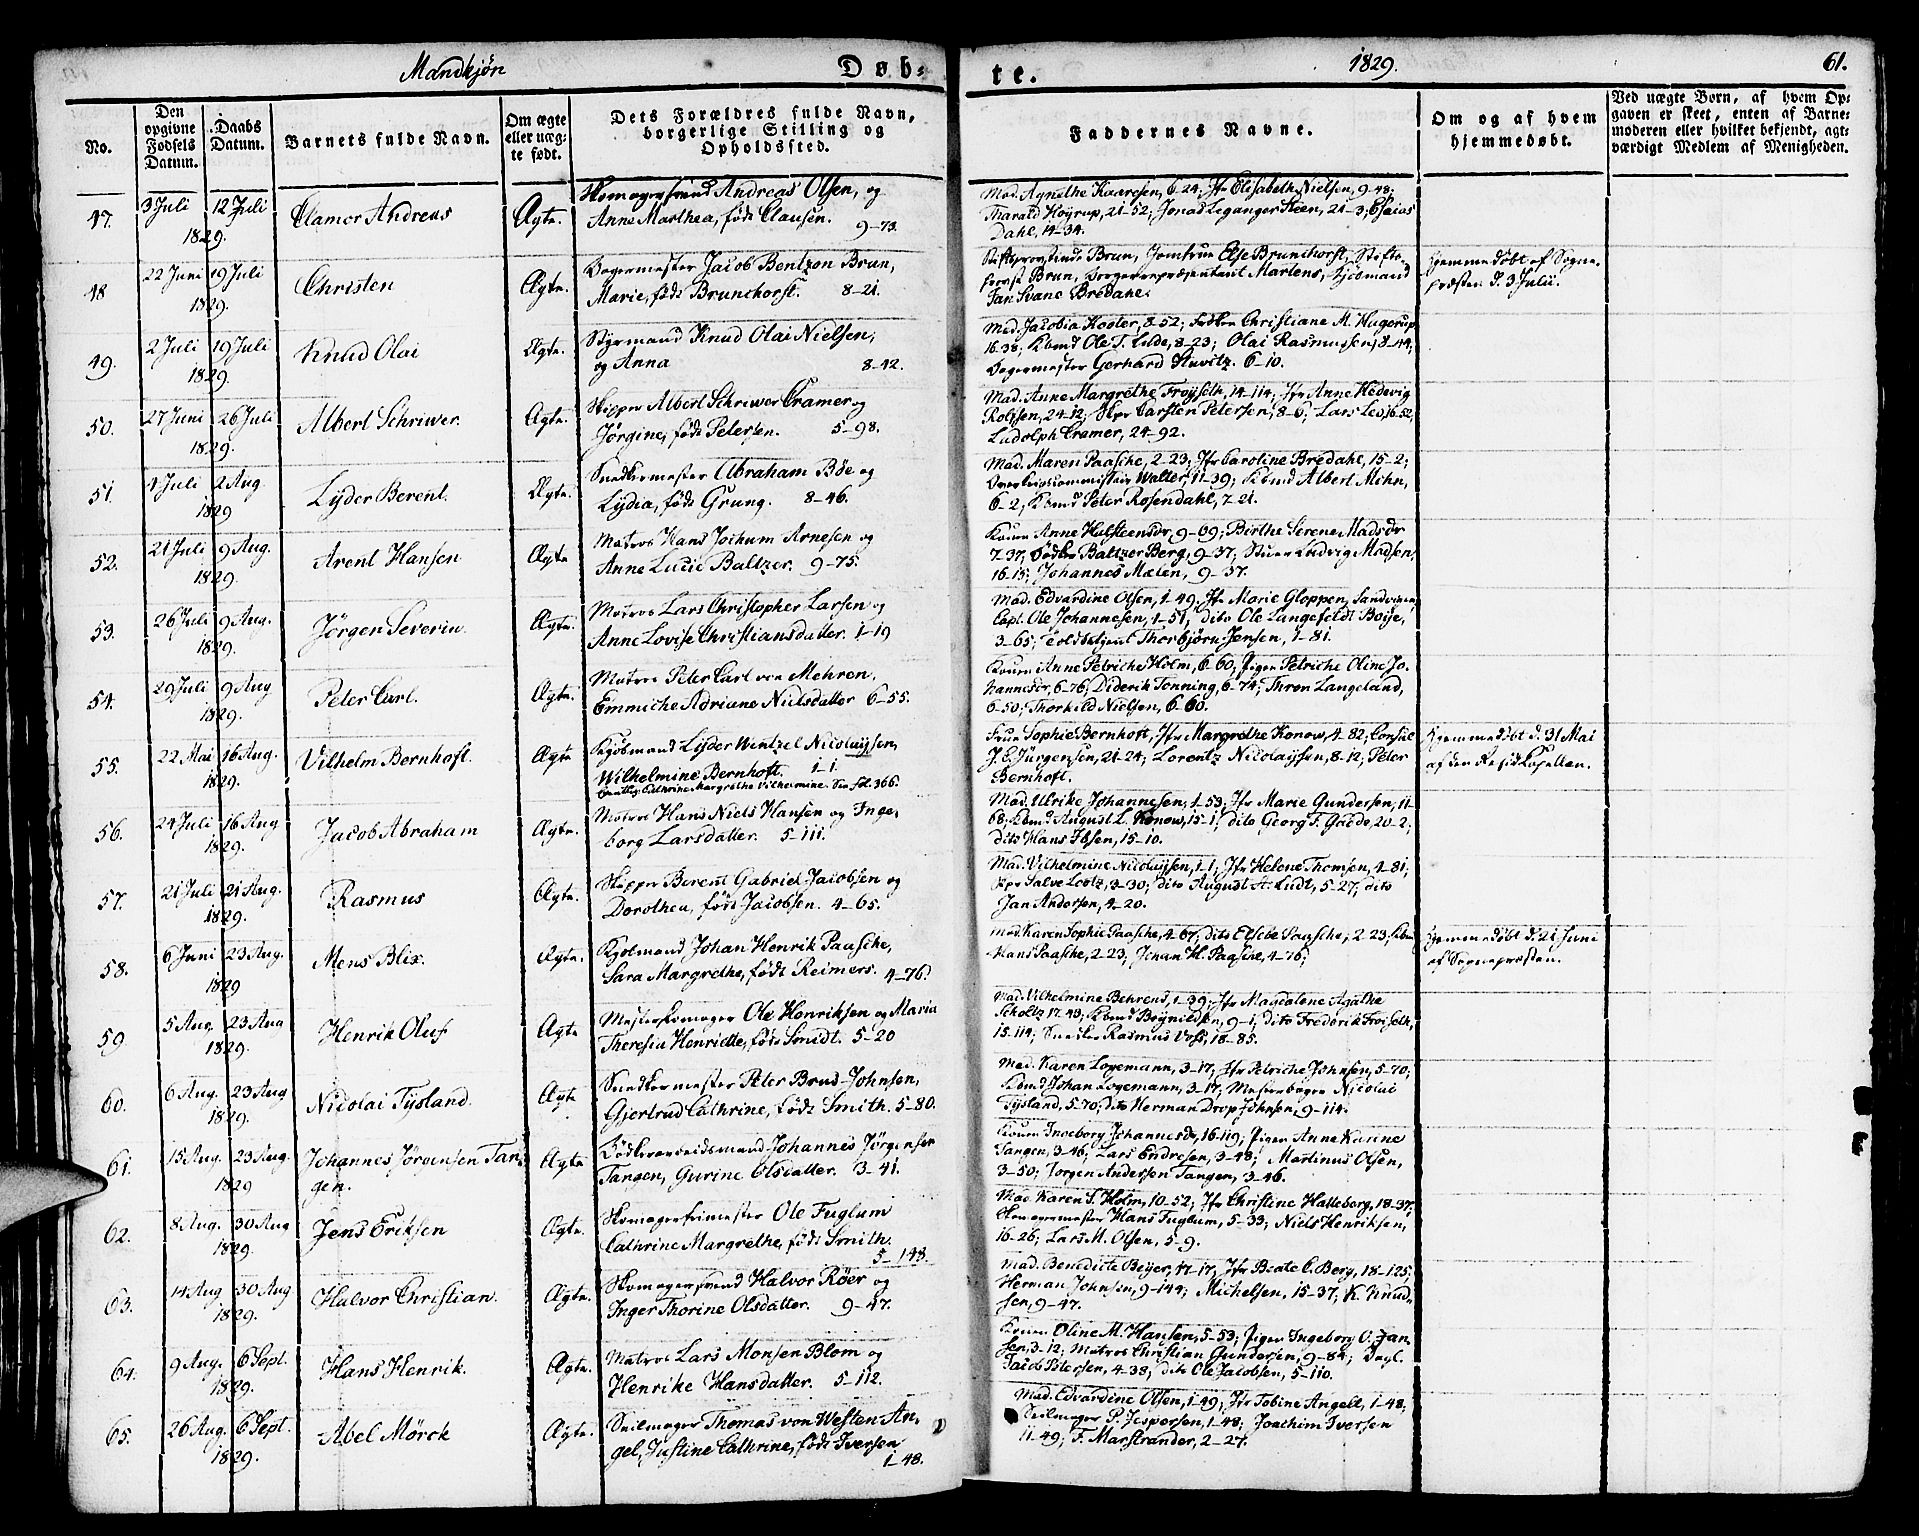 Mandkjøn Døb- te. 1829. 61.
No.
Den opgivne Fødsels Datum.
Daabs Datum.
Barnets fulde Navn.
Om ægte eller uæg- te født.
Dets Forældres fulde Navn, borgerlige Stilling og Opholdssted.
Faddernes Navne.
Om og af hvem hjemmedøbt.
Ved uægte Børn, af hvem Op- gaven er skeet, enten af Barne- moderen eller hvilket bekjendt, agt- værdigt Medlem af Menigheden.
47. 3 Juli 12 Juli 1829. Clamor Andreas Ægte.
Skomagersvend Andreas Olsen, og
Anne Marthea, født Clausen. 9-73.
Mad. Agnethe Kaaresen, 6-24; Jfr Elisabeth Nielsen, 9-48;
Tharald Høyrup, 21-52; Jonas Leganger Steen, 21-3; Esaias
Dahl, 14-34.
48 22 Juni 19 Juli 1829. Christen Ægte.
Bagermester Jacob Bentzon Brun,
Marie, født Brunchorst. 8-21.
Stiftsprovstinde Brun, Jomfrue Else Brunchorst, Stifts-
provst Brun, Borgerrepræsentant Martens,
Jan Svane Bredahl.
Hjemmedøbt af Sogne-
præsten d. 3 Julii.
49. 2 Juli 19 Juli 1829. Knud Olai Ægte.
Styrmand Knud Olai Nielsen,
og Anna 8-42.
Mad. Jacobia Koster, 8-52; Christiane M. Hugerup
16-38; Kbmd Ole T. Lilde, 8-23; Olai Rasmussen, 8-44;
Bagermester Gerhard Stuvitz. 6-10.
50. 27 Juni 26 Juli 1829. Albert Schriwer. Ægte.
Skipper Albert Schriwer Cramer og
Jørgine, født Petersen. 5-98.
Mad. Anne Margrethe Frøyseth, 14-114; Jfr Anne Hedevig
24-12; Skpr Carsten Petersen, 8-6; Lars Les, 16-52,
Ludolph Cramer, 24-92.
51. 1 Juli 2 Aug. 1829 Lyder Berent. Ægte.
Snedkermester Abraham Bøe og
Lydia, født Grung. 8-46.
Mad. Maren Paasche, 2-23; Jfr Caroline Bredahl, 15-2;
Overkrigscommissair Walter, 11-39; Kbmd Albert Mehn,
6-2, Kbmd Peter Rosendahl, 7-21.
52. 21 Juli 9 Aug. 1829. Arent Hansen Ægte
Matros Hans Jochum Arnesen og
Anne Lucie Baltzer. 9-75.
Konen Anne Halsteensdr, 9-69; Birthe Serene Madsdr
7-37, Bødker Baltzer Berg, 9-37; Ludvig Madsen,
16-15; Johannes Mælen, 9-37.
53. 26 Juli 9 Aug. 1829. Jørgen Severin. Ægte.
Matros Lars Christopher Larsen og
Anne Lovise Christiansdatter. 1-19
Mad. Edvardine Olsen, 1-49, Jfr Marie Gloppen, Sandvigen,
Capt. Ole Johannesen, 1-51; dito Ole Langefeldt Boije,
3-65; Thorbjørn Jensen, 1-81.
54. 29 Juli 9 Aug 1829. Peter Carl. Ægte.
Matros Peter Carl von Mehren,
Emmiche Adriane Nielsdatter 6-55.
Konen Anne Petriche Holm, 6-60, Pigen Petriche Oline Jo-
hannesdr, 6-76; Diderik Tønning, 6-74; Thron Langeland,
6-50; Thorkild Nielsen, 6-60.
55. 22 Mai 16 Aug. 1829. Vilhelm Bernhoft. Ægte
Kjøbmand Lyder Wentzel Nicolaysen,
Wilhelmine Bernhoft. 1-1.
Cathrine Margrethe Vilhelmine. See fol. 366.
Frue Sophie Bernhoft, Jfr Margrethe Konow, 4-82; Consul
J. E. Jürgensen, 21-24; Lorentz Nicolaysen, 8-12; Peter
Bernhoft.
Hjemmedøbt d. 31 Mai
af den Resid. Kapellan.
56. 24 Juli 16 Aug 1829. Jacob Abraham Ægte.
Matros Hans Niels Hansen og Inge-
borg Larsdatter. 5-111.
Mad. Ulrike Johannesen, 1-53; Jfr Marie Gundersen, 11-
68; Kbmd August L. Konow, 15-1; dito Georg F. Gaede, 20-2;
dito Hans Ibsen, 15-10.
57. 21 Juli 21 Aug. 1829. Rasmus Ægte.
Skipper Berent Gabriel Jacobsen og
Dorothea, født Jacobsen. 4-65.
Mad. Vilhelmine Nicolaysen, 1-1; Jfr Helene Thomsen, 4-81;
Skpr Salve Lootz, 3-30; dito August A. Ludt, 5-27; dito
Jan Andersen, 4-20.
58. 6 Juni 23 Aug. 1829 Mens Blix. Ægte.
Kjøbmand Johan Henrik Paasche,
Sara Margrethe, født Reimers. 4-76.
Mad. Karen Sophie Paasche, 4-67; dito Elsebe Paasche, 2-23; Kbmd
Hans Paasche, 2-23; Johan H. Paasche, 4-76;
Hjemmedøbt d. 21 Juni
af Sognepræsten.
59 5 Aug. 23 Aug 1829. Henrik Oluf Ægte
Mesterskomager Ole Henriksen og Maria
Theresia Henriette, født Smidt. 5-20
Mad. Vilhelmine Behrens, 1-39; Jfr Magdalene Agathe
Scholtz 17-49; Kbmd Bøynildsen, 9-1; dito Frederik Froiseth,
15-114; Snedker Rasmus Vesi, 18-85.
60. 6 Aug. 23 Aug 1829. Nicolai Tysland. Ægte
Snedkermester Peter Brud Johnsen,
Gjertrud Cathrine, født Smith. 5-80.
Mad. Karen Logemann, 3-17; Jfr Petriche Johnsen, 5-70;
Kbmd Johan Logemann, 3-17; Mesterbager Nicolai
Tysland, 5-70; dito Herman Drop Johnsen, 9-114.
61. 15 Aug. 23 Aug. 1829 Johannes Jørgensen Tan-
gen. Ægte.
Bødkerarbeidsmand Johannes Jørgensen
Tangen, Gurine Olsdatter. 3-41.
Konen Ingeborg Johannesdr, 16-119; Pigen Anne Karine
Tangen, 3-46; Lars Endresen, 3-48; Martinus Olsen,
3-50; Jørgen Andersen Tangen, 3-46.
62. 8 Aug. 30 Aug 1829. Jens Eriksen Ægte.
Skomagerfrimester Ole Fuglum
Cathrine Margrethe, født Smith.
5-148.
Mad. Karen S. Holm, 10-52; Jfr Christine Halleborg, 18-37;
Skomagermester Hans Fuglum, 5-33; Niels Henriksen,
16-26; Lars M. Olsen, 5-9.
63. 14 Aug 30 Aug 1829. Halvor Christian. Ægte.
Skomagersvend Halvor Røer og
Inger Thorine Olsdatter. 9-47.
Mad. Benedicte Beyer, 17-17; Jfr Beate C. Berg, 18-125;
Herman Johnsen, 9-144; Michelsen, 15-37; K. Knud-
sen, 9-47.
64. 9 Aug. 6 Sept. 1829. Hans Henrik. Ægte.
Matros Lars Monsen Blom og
Henrike Hansdatter. 5-112.
Konen Oline M. Hansen, 5-53; Pigen Ingeborg O. Jan-
sen, 3-12; Matros Christian Gundersen, 9-84; Dagl.
Jacob Petersen, 4-38; dito Ole Jacobsen, 5-110.
65. 26 Aug. 6 Sept. 1829. Abel Mörck Ægte.
Seilmager Thomas von Westen An-
gel, Justine Cathrine, født Iversen
1-48.
Mad. Edvardine Olsen, 1-49; Jfr Tobine Angell, 1-48;
Seilmager P. Jespersen, 1-48; Joachim Iversen
11-49; F. Marstrander, 2-27.